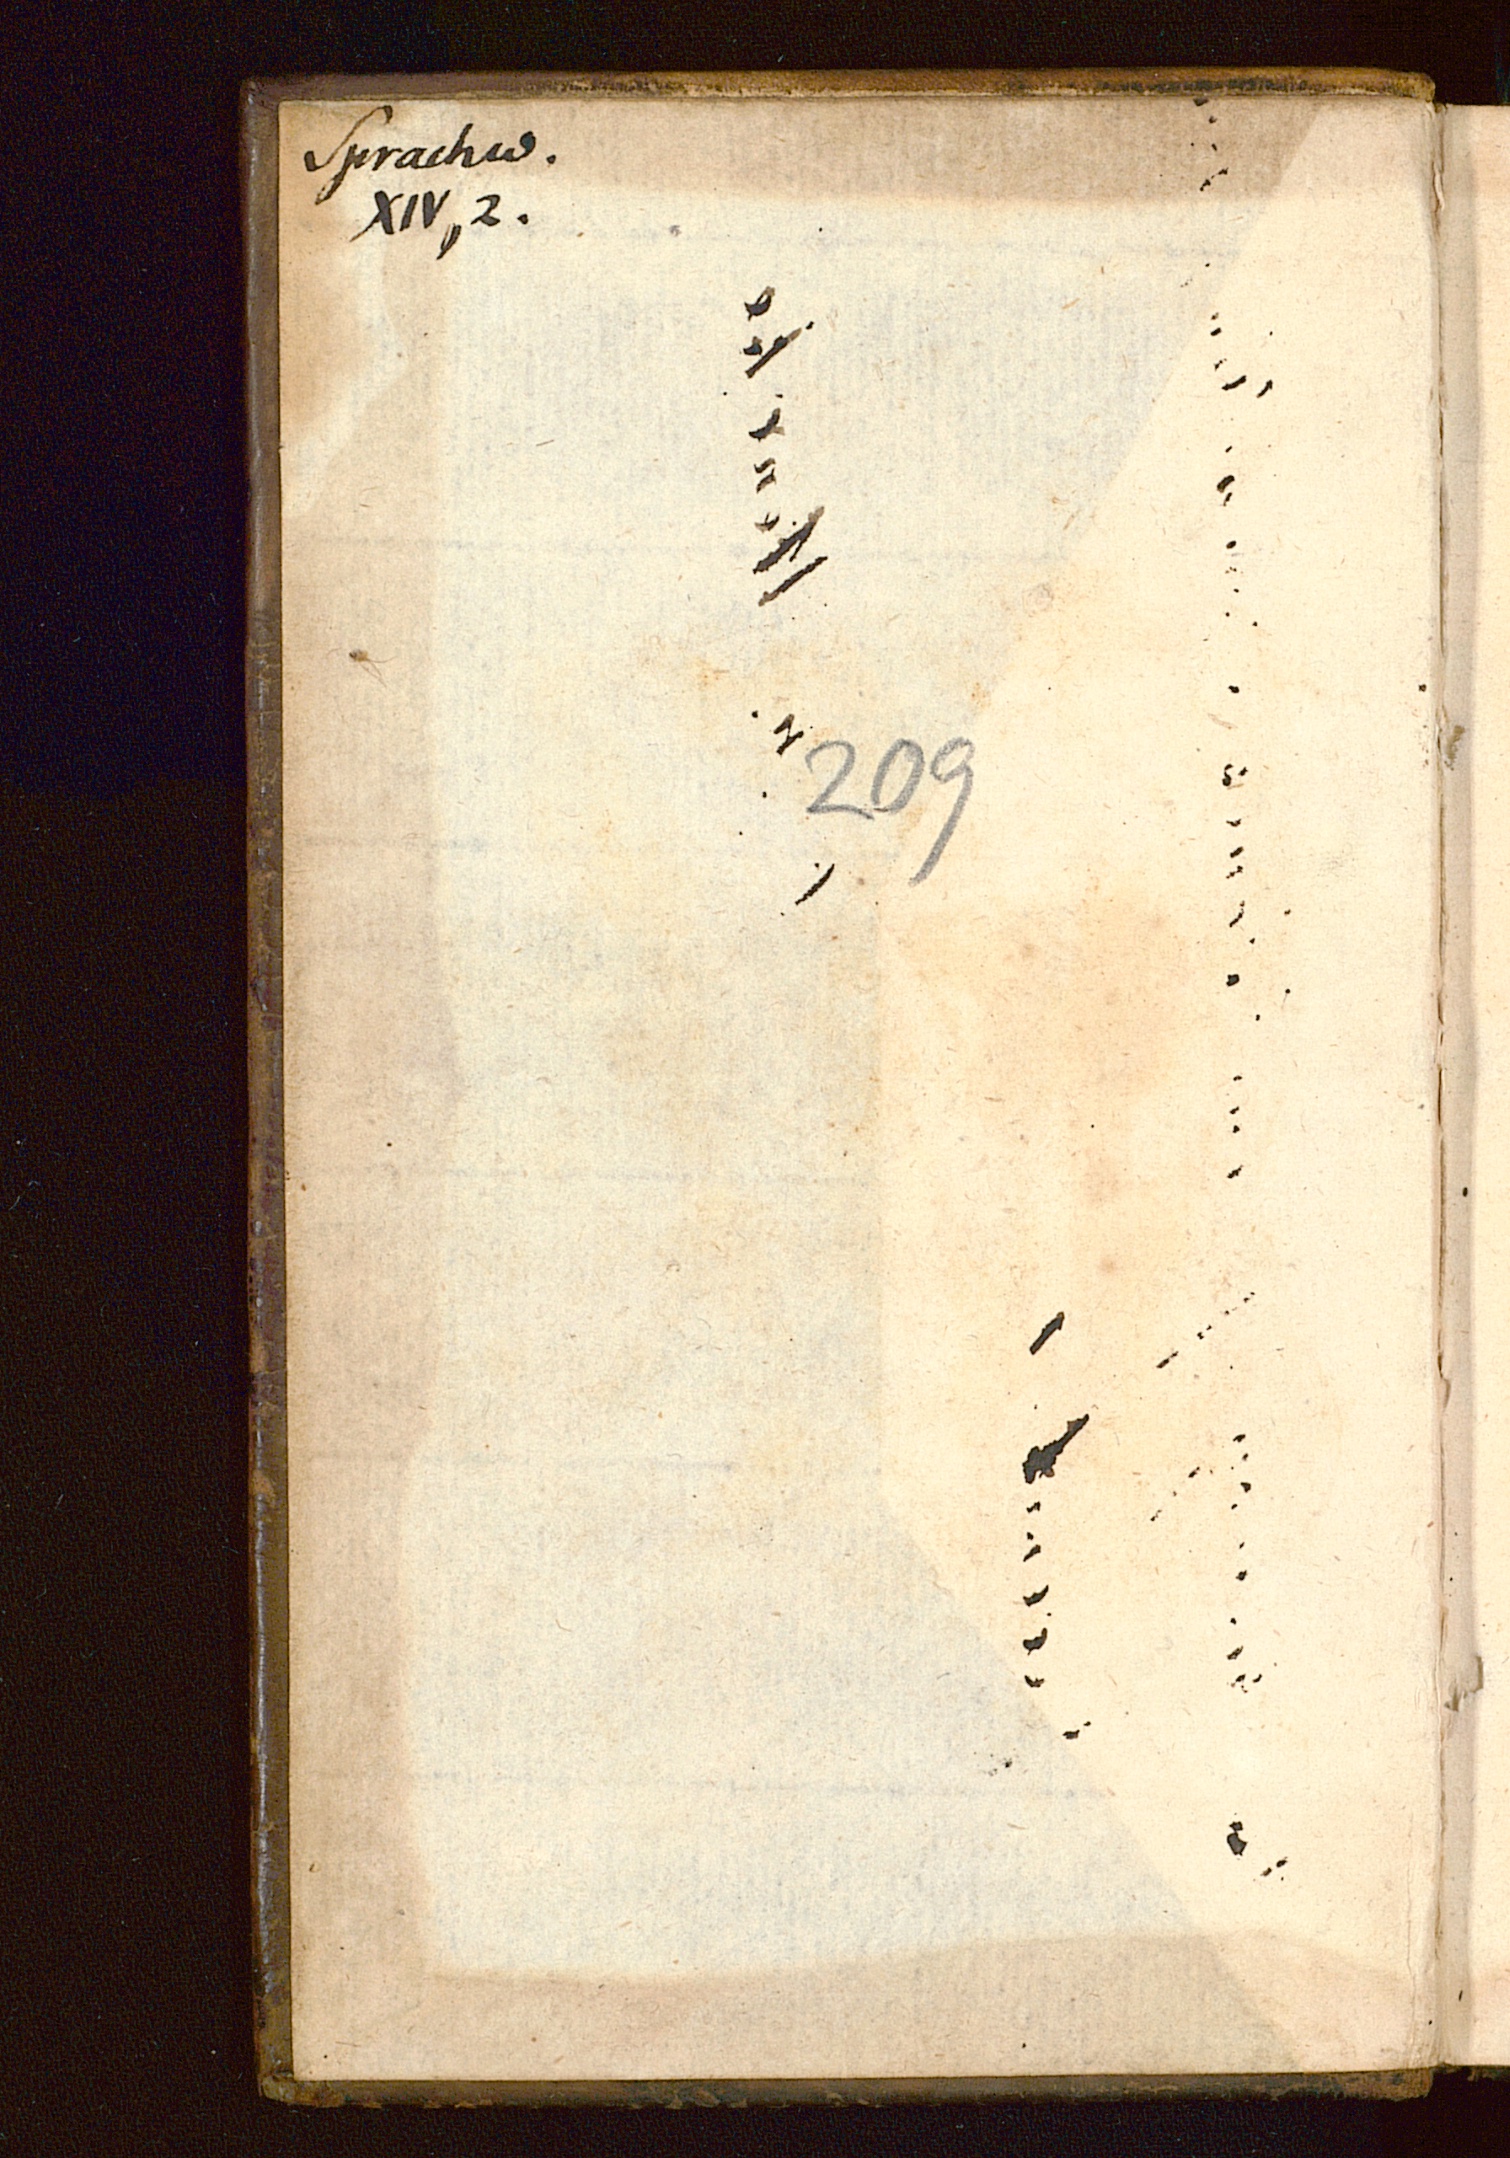 Sprachw.
XIV, 2.
209